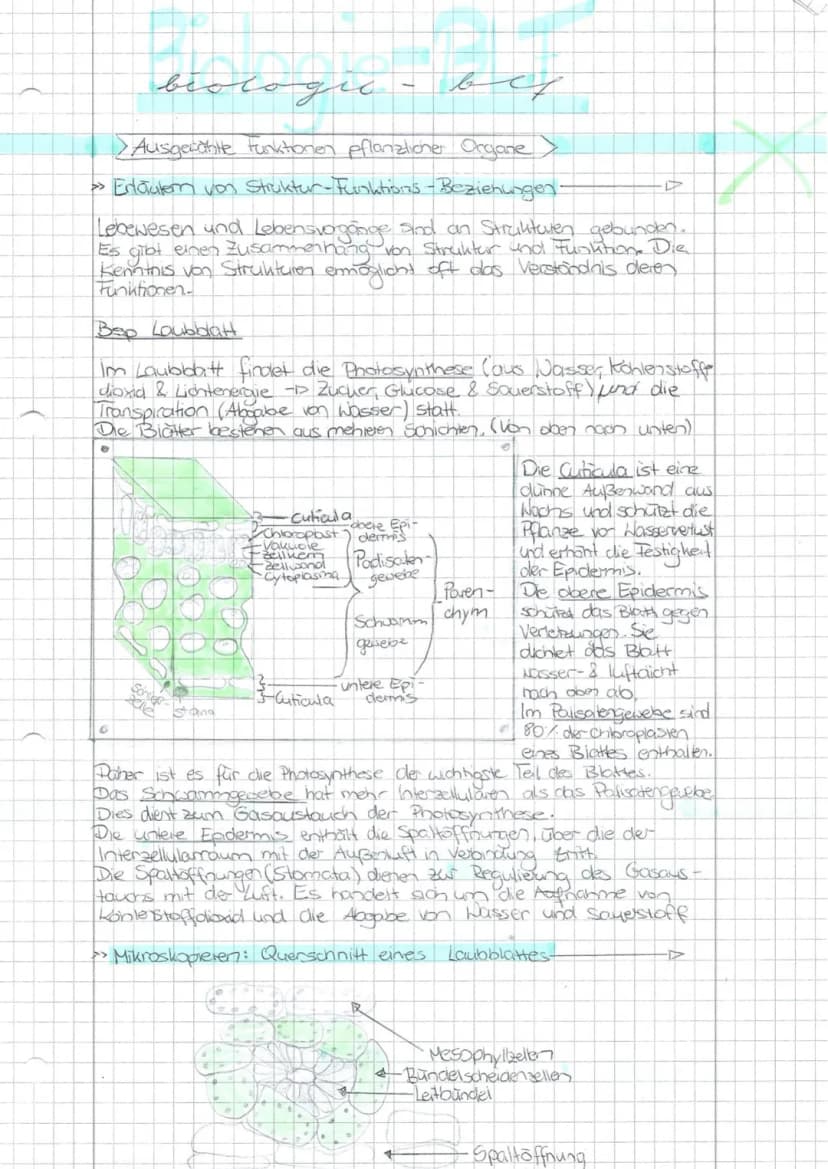 Biologie-BLF
biologie - blf
Ausgewählte Funktionen pflanzlicher Organe
>> Erläutern von Struktur-Funktions-Beziehungen
Lebewesen und Lebensvorgänge sind an Strukturen gebunden.
Es gibt einen Zusammenhang von Struktur und Funktion. Die
Kenntnis von Strukturen ermöglicht oft das Verständnis deren
Funktionen.
Bsp Laubblatt
Im Laubblatt findet die Photosynthese (aus Wasser, Kohlenstoff-
dioxid & Lichtenergie → Zucker, Glucose & Sauerstoff) und die
Transpiration (Abgabe von Wasser) statt.
Die Blätter bestehen aus mehreren Schichten. (Von oben nach unten)
Cuticula
Chloroplast
Vakuole
Zellkern
Zellwand
Cytoplasma
obere Epi-
dermis
Palisaden-
gewebe
Schwamm
gewebe
Paren-
chym
untere Epi-
dermis
Cuticula
Schließ-
zelle
Die Cuticula ist eine
dünne Außenwand aus
Wachs und schützt die
Pflanze vor Wasserverlust
und erhöht die Festigkeit
der Epidermis.
Die obere Epidermis
schützt das Blatt gegen
Verletzungen. Sie
dichtet das Blatt
wasser- & luftdicht
nach oben ab.
Im Palisatengewebe sind
80% der Chloroplasten
eines Blattes enthalten.
Daher ist es für die Photosynthese der wichtigste Teil des Blattes.
Das Schwammgewebe hat mehr Interzellularen als das Palisatengewebe.
Dies dient zum Gasaustauch der Photosynthese.
Die untere Epidermis enthält die Spaltöffnungen, über die der
Interzellularraum mit der Außenluft in Verbindung tritt.
Die Spaltöffnungen (Stomata) dienen zur Regulierung des Gasaus-
tauchs mit der Luft. Es handelt sich um die Aufnahme von
Kohlestoffdioxid und die Abgabe von Wasser und Sauerstoff
>> Mikroskopieren: Querschnitt eines Laubblattes
Mesophylzellen
Bündelscheidenzellen
Leitbündel
Spaltöffnung